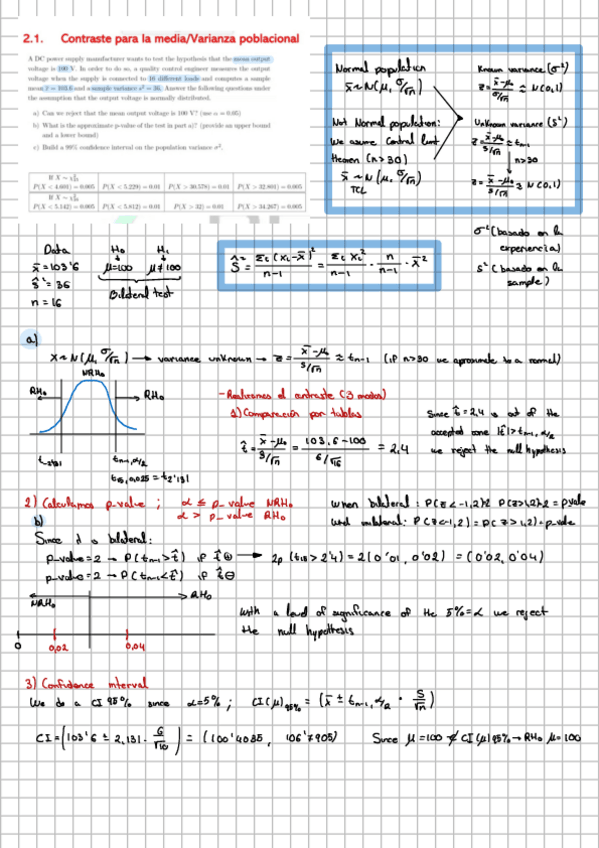 2.1. Contraste para la media/Varianza poblacional
A DC power supply manufacturer wants to test the hypothesis that the mean output
voltage is 100 V. In order to do so, a quality control engineer measures the output
voltage when the supply is connected to 16 different loads and computes a sample
mean x̄ = 103.6 and a sample variance s² = 36. Answer the following questions under
the assumption that the output voltage is normally distributed.
a) Can we reject that the mean output voltage is 100 V? (use α = 0.05)
b) What is the approximate p-value of the test in part a)? (provide an upper bound
and a lower bound)
c) Build a 99% confidence interval on the population variance σ².
If X ~ χ²₁₅
P(X < 4.601) = 0.005 P(X < 5.229) = 0.01 P(X > 30.578) = 0.01 P(X > 32.801) = 0.005
If X ~ χ²₁₆
P(X < 5.142) = 0.005 P(X < 5.812) = 0.01 P(X > 32) = 0.01 P(X > 34.267) = 0.005
Normal population
x̄ ~ N(μ, σ/√n)
Not Normal population:
We assume Central limit
theorem (n>30)
x̄ ~ N(μ, σ/√n)
TCL
Known variance (σ²)
z = x̄-μ / σ/√n ≈ N(0,1)
Unknown variance (s²)
z = x̄-μ / s/√n ≈ tn-1
n>30
z = x̄-μ / s/√n ≈ N(0,1)
σ² (basado en la
experiencia)
s² (basado en la
sample)
Data
x̄ = 103'6
ŝ² = 36
n = 16
H₀ H₁
μ=100 μ≠100
Bilateral test
Ŝ² = Σi (xi - x̄)² / n-1 = Σi xi² / n-1 - n / n-1 · x̄²
a)
x ~ N(μ, σ/√n) → variance unknown → z = x̄-μ₀ / s/√n ≈ tn-1 (if n>30 we aproximate to a normal)
NRH₀
RH₀ RH₀
t-2'131 tn-1, α/2
t15, 0,025 = t2'131
- Realizamos el contraste (3 modos)
1) Comparación por tablas
t̂ = x̄-μ₀ / s/√n = 103,6-100 / 6/√16 = 2,4
Since t̂ = 2,4 is out of the
accepted zone |t̂| > tn-1, α/2
we reject the null hypothesis
2) Calculamos p-value ; α ≤ p_value NRH₀
α > p_value RH₀
When bilateral : P(z<-1,2)·2 P(z>1,2)·2 = pvalue
Until unilateral : P(z<-1,2) = P(z>1,2) = p-value
b)
Since it is bilateral:
p-value = 2 → P(tn-1 > t̂) if t̂ ⊕ → 2p (t15 > 2'4) = 2(0'01, 0'02) = (0'02, 0'04)
p-value = 2 → P(tn-1 < t̂) if t̂ ⊖
NRH₀ RH₀
0 0,02 0,04
With a level of significance of the 5% = α we reject
the null hypothesis
3) Confidence interval
We do a CI 95% since α=5% ; CI(μ)95% = (x̄ ± tn-1, α/2 · S/√n)
CI = (103'6 ± 2,131 · 6/√16) = (100'4035, 106'7905) Since μ=100 ∉ CI(μ)95% → RH₀ μ=100